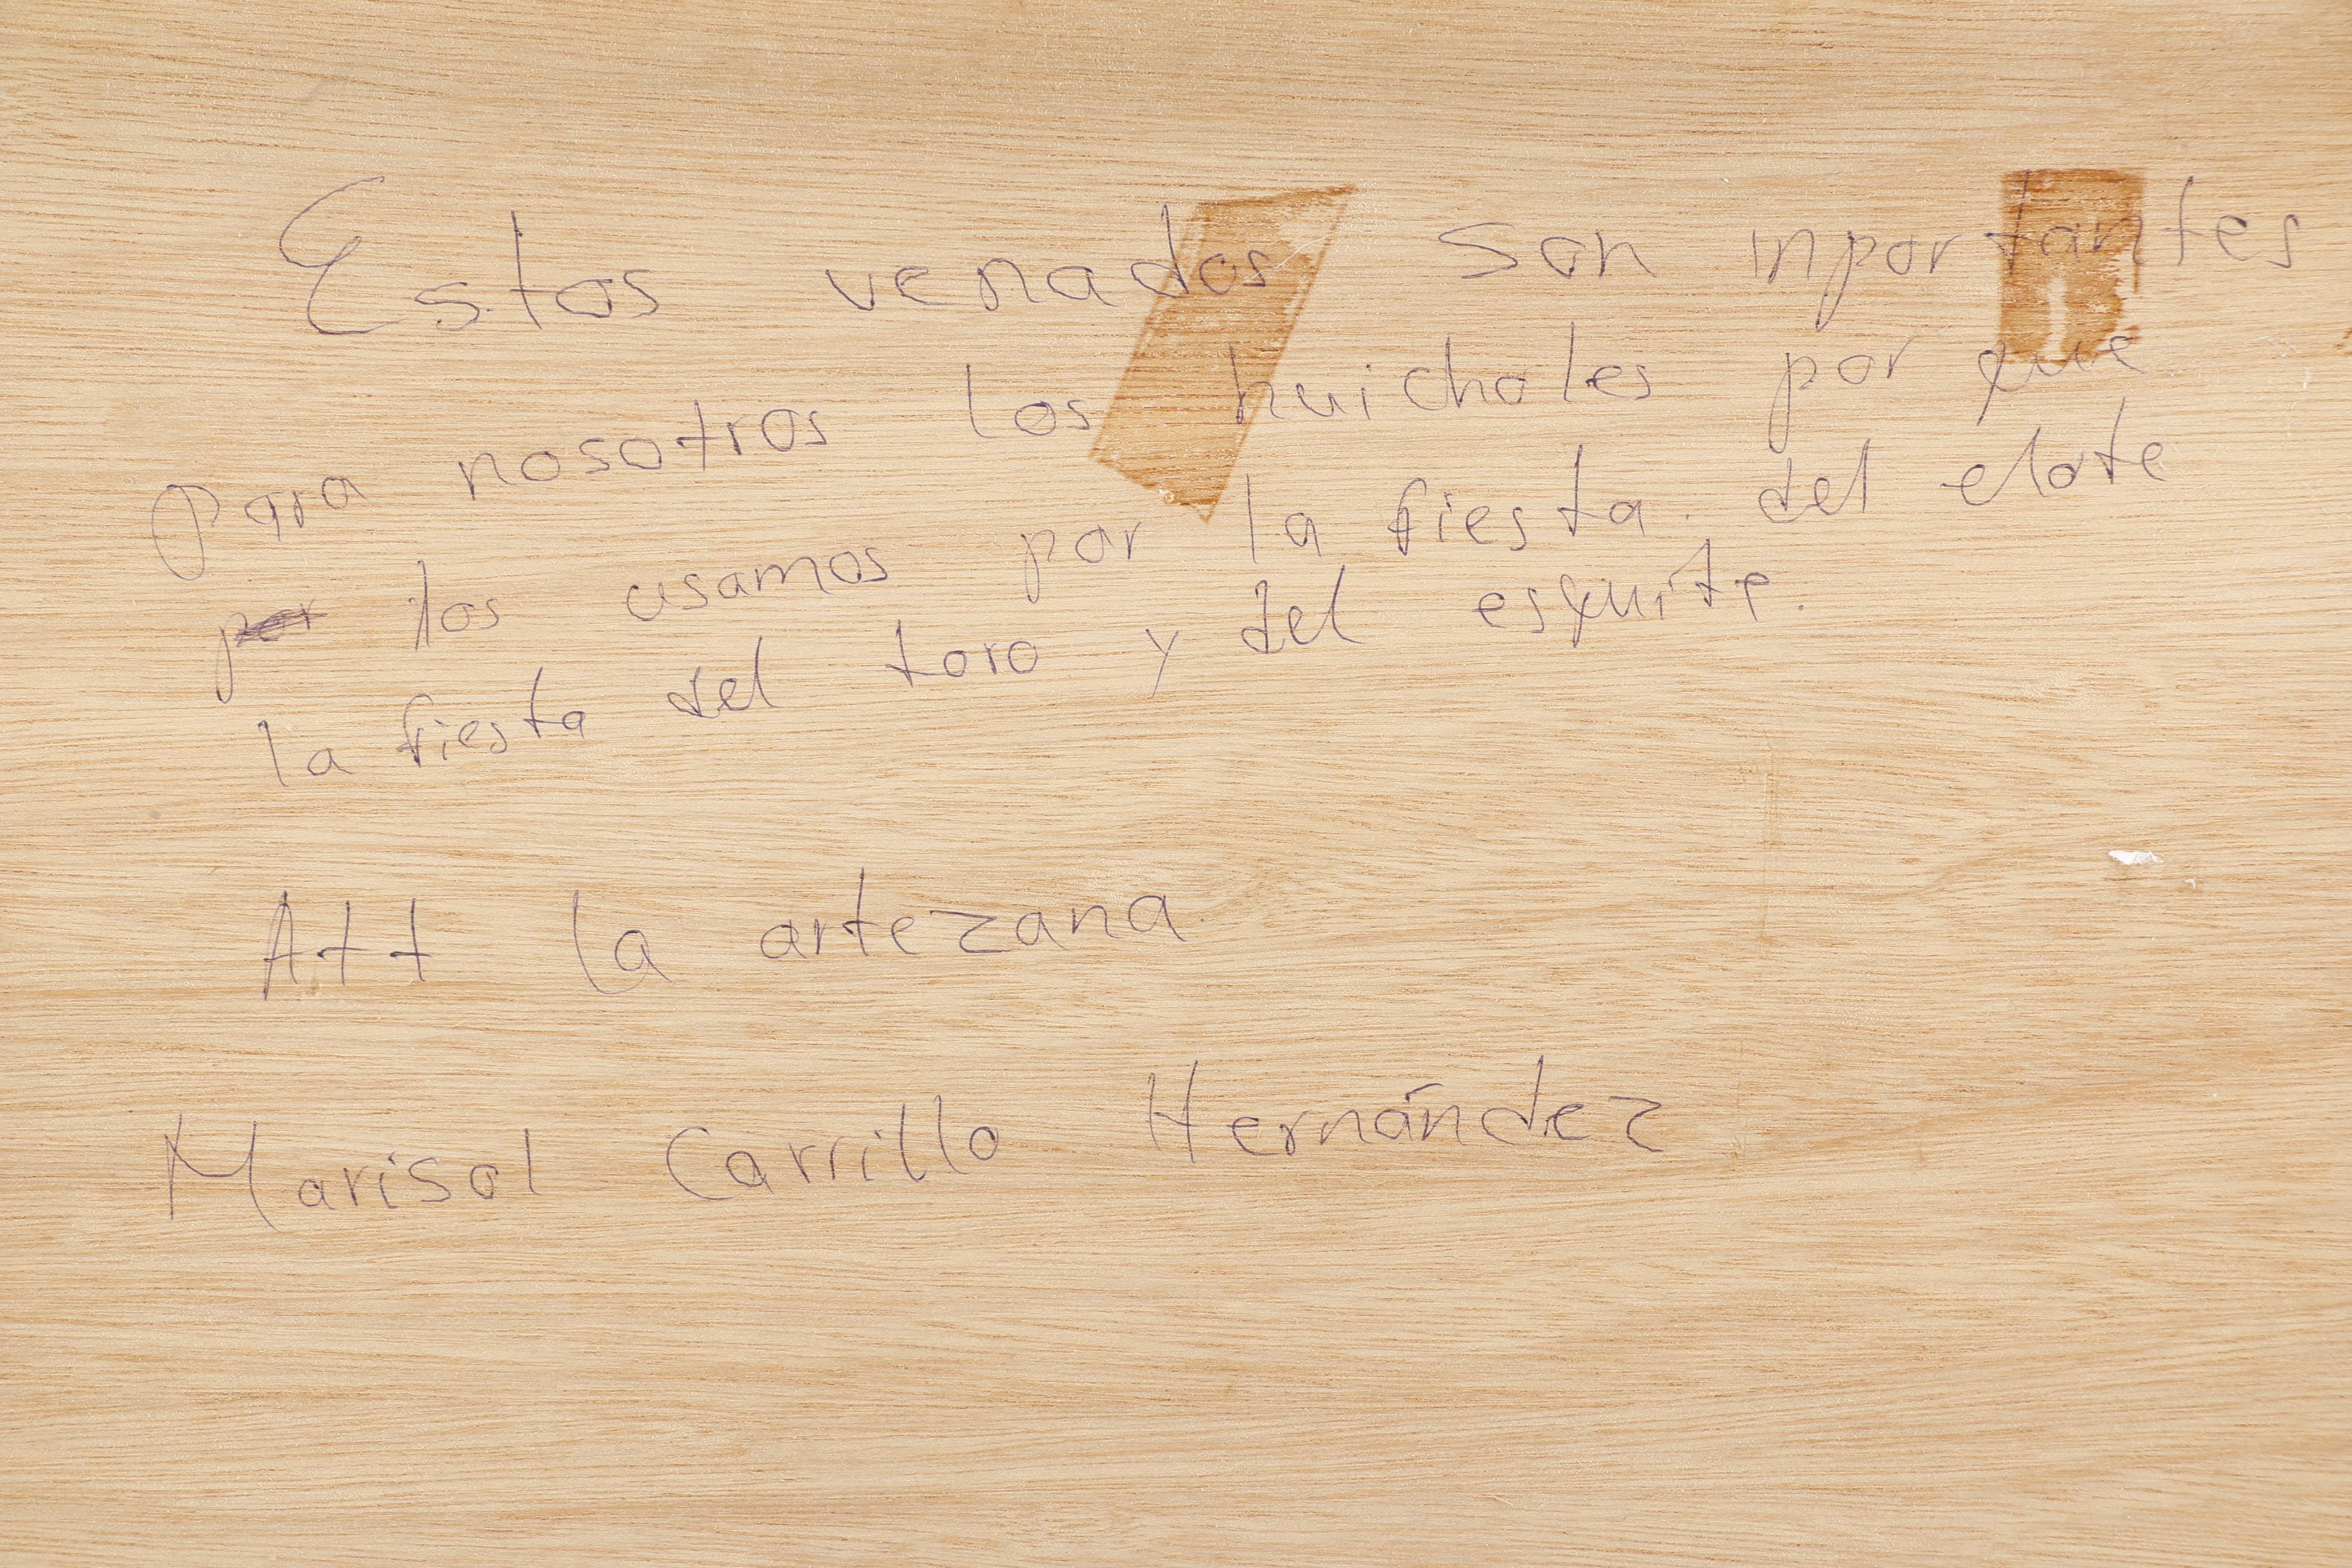 Estos venados son inportantes
Para nosotros los huicholes por que
los usamos por la fiesta del elote
la fiesta del toro y del esquite.
Att la artezana
Marisol Carrillo Hernández